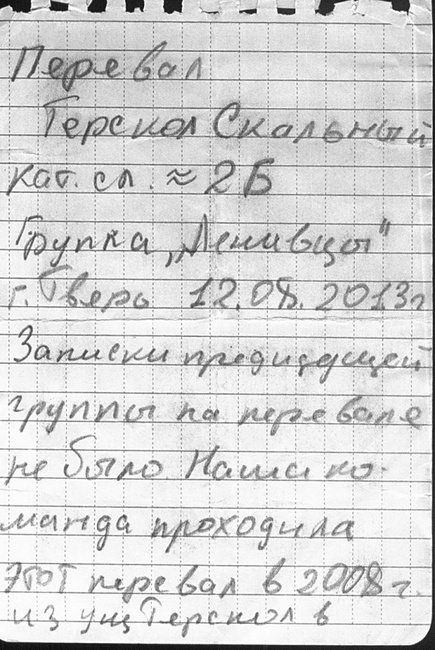 Перевал
Терскол Скальный
кат. сл. ≈ 2Б
Группа „Ленивцы"
г. Тверь 12.08.2013г
Записки предидущей
группы на перевале
не было. Наша ко-
манда проходила
этот перевал в 2008г.
из ущ Терскол в